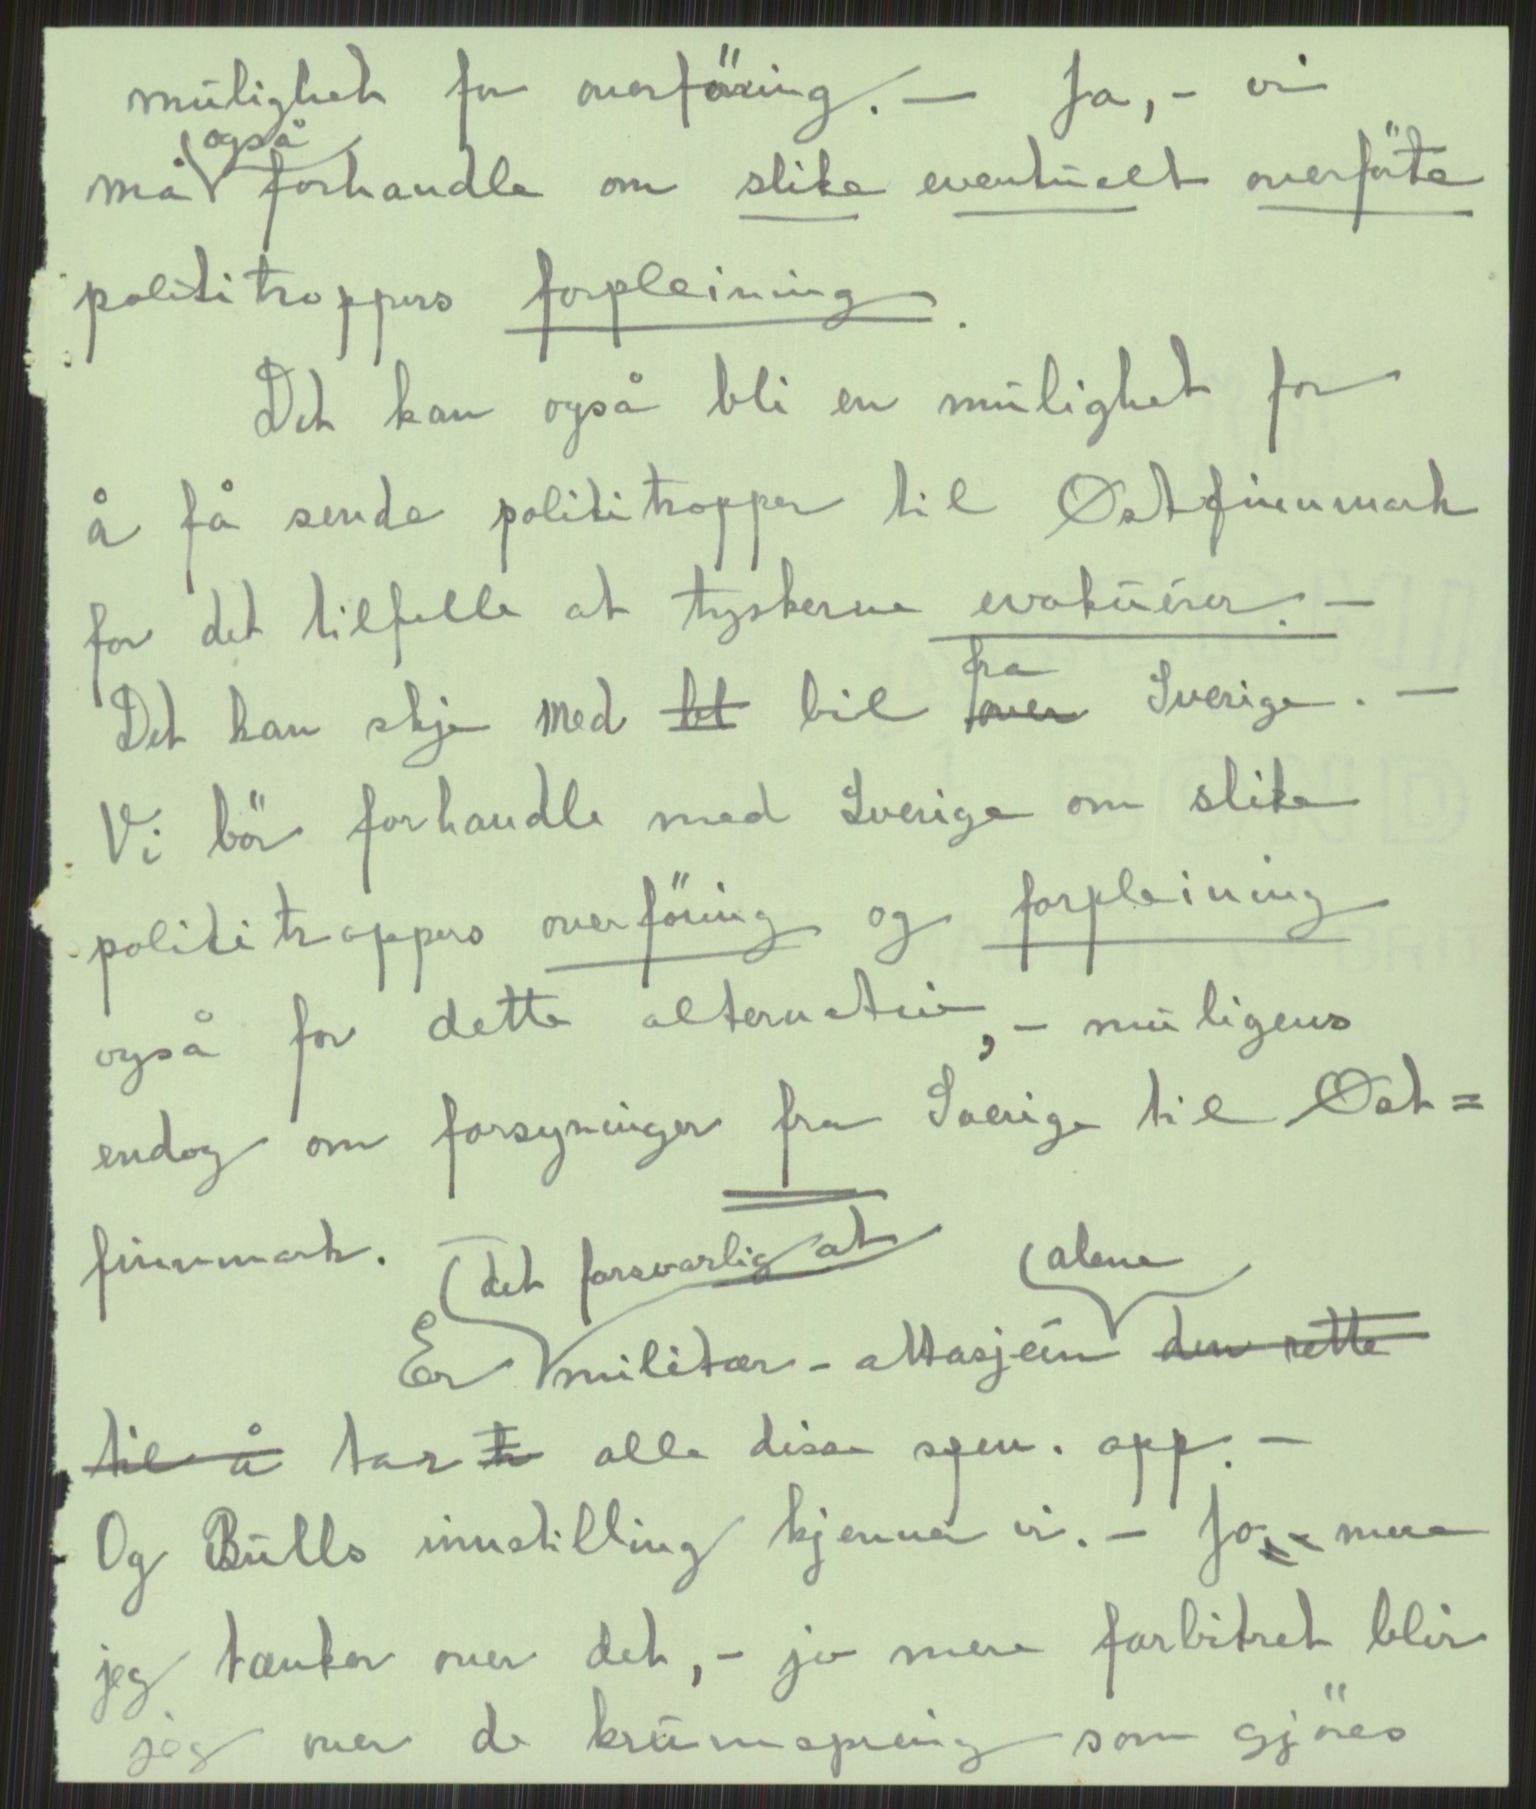 mulighet for overföring. — Ja, - vi
også
må forhandle om slike eventuelt overförte
polititroppers forpleining.
Det kan også bli en mulighet for
å få sende polititropper til Østfinnmark
for det tilfelle at tyskerne evakuérer. —
fra
Det kan skje med bil over Sverige. —
Vi bör forhandle med Sverige om slike
polititroppers overföring og forpleining
også for dette alternativ, - muligens
endog om forsyninger fra Sverige til Øst=
finnmark.
det forsvarlig at alene
Er militær-attasjéin den rette
til å tar alle disse spm. opp. —
Og Bulls innstilling kjenner vi. — Jo - mere
jeg tænker over det, - jo mere forbitret blir
jeg over de krumspring som gjöres